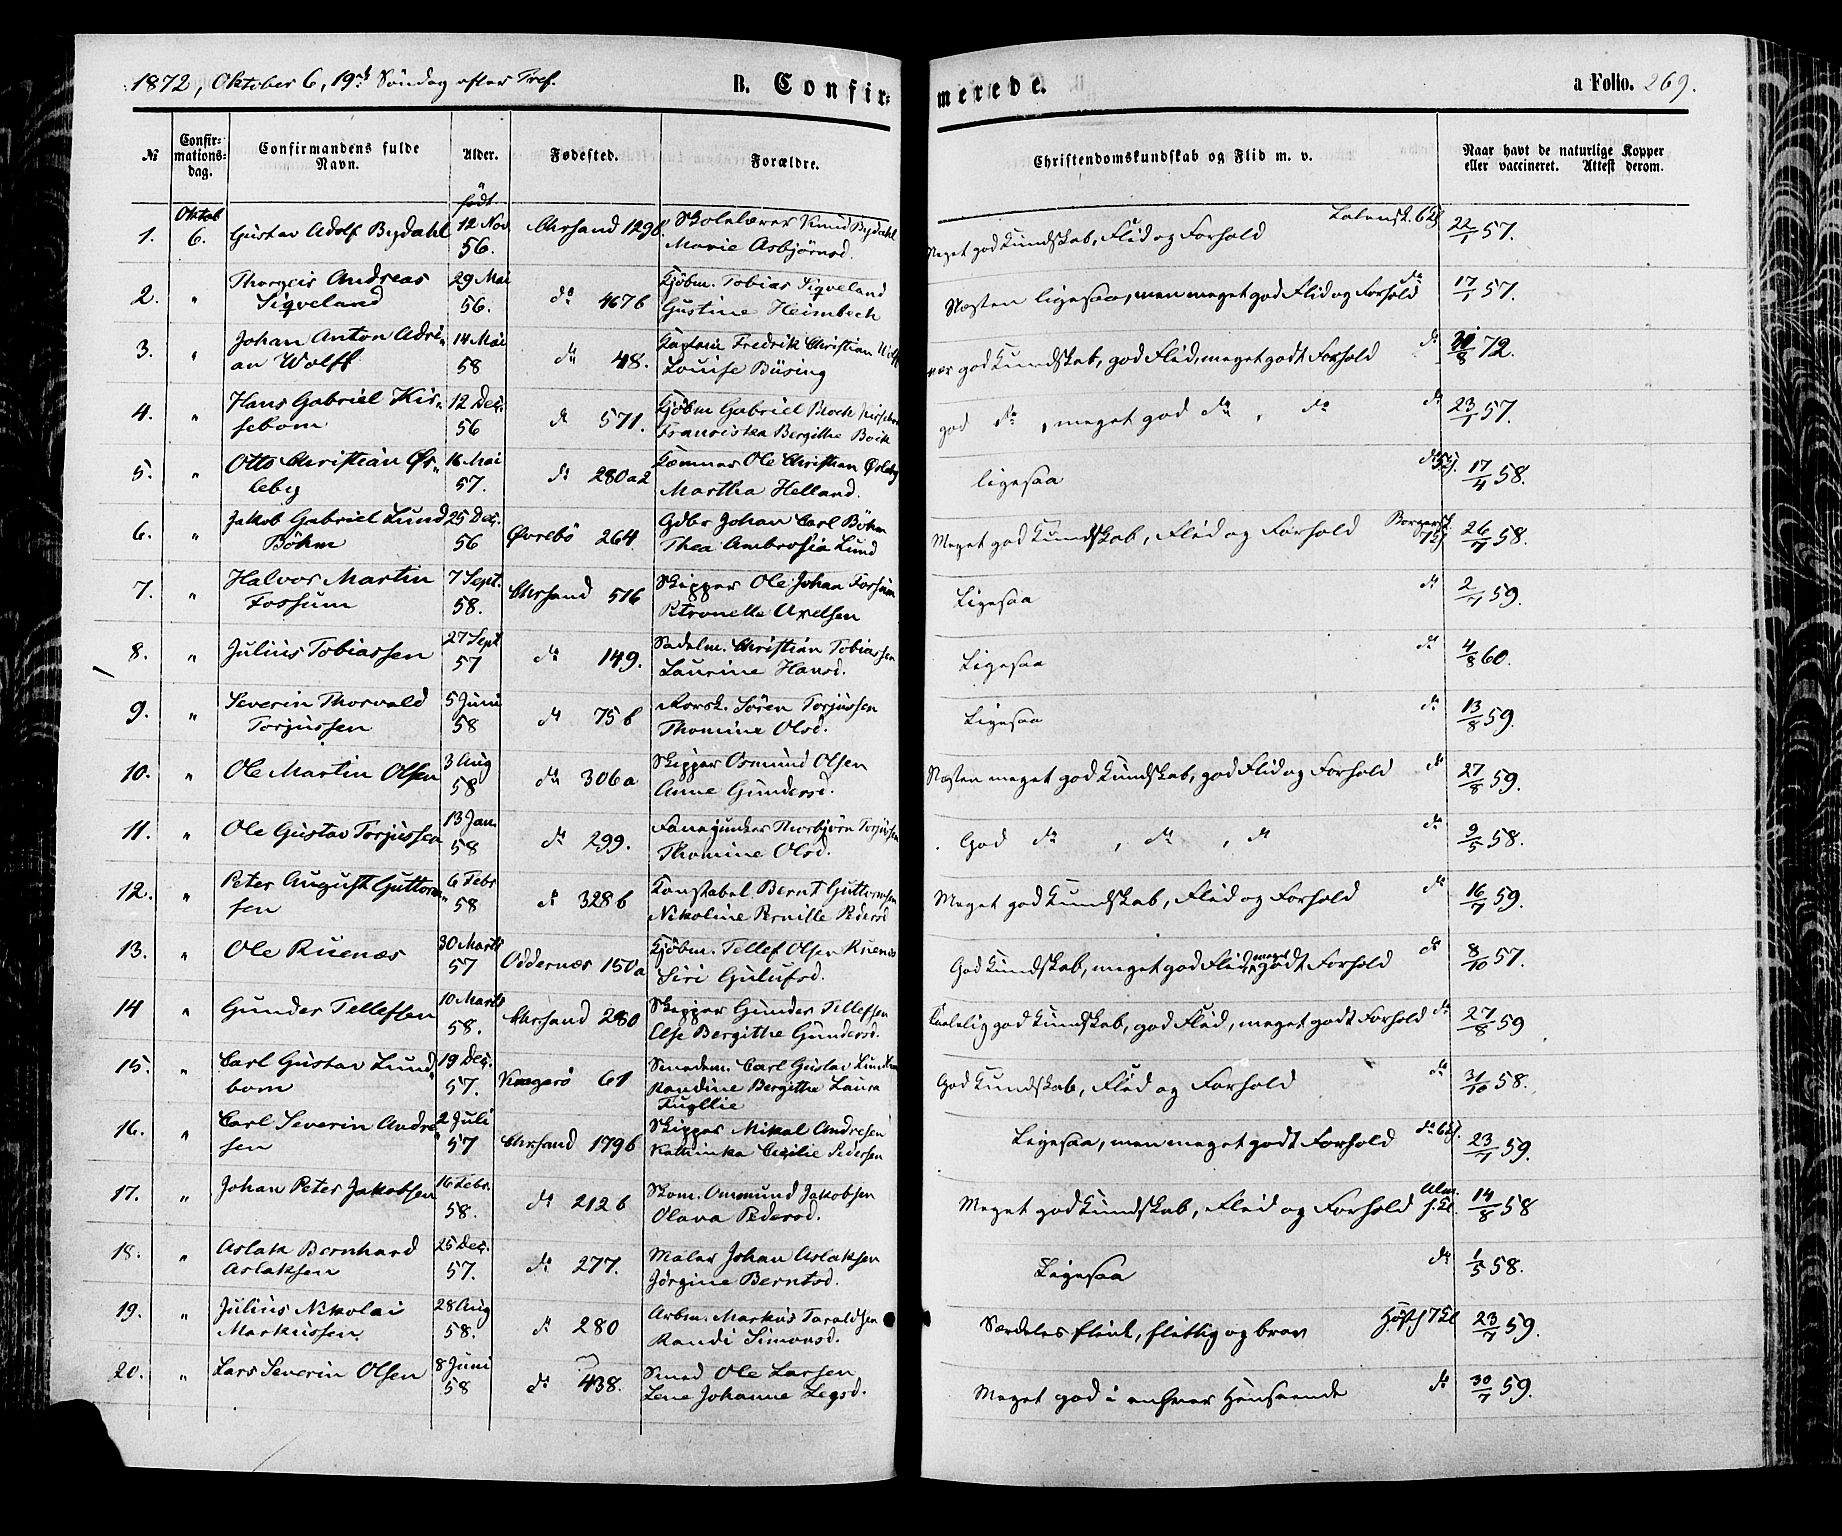 1872, Oktober 6, 19de Søndag efter Tref.
B. Confirmerede.
a Folio. 269.
№ Confirmations-dag. Confirmandens fulde Navn. Alder. Fødested. Forældre. Christendomskundskab og Flid m. v. Naar havt de naturlige Kopper eller vaccineret. Attest derom.
Oktob født
1. 6. Gustav Adolf Bydahl 12 Nov 56. Chrsand 129b. Skolelærer Knud Bydahl
Marie Asbjørnsd. Meget god Kundskab, Flid og Forhold Latinsk. 22/1 57.
2. " Thorgeis Andreas 29 Mai Kjøbm. Tobias Sigveland
Sigveland 56. do 467b Gustine Heimbech Næsten ligesaa, men meget god Flid og Forhold do 17/1 57.
3. " Johan Anton Adri- 14 Mai Kaptein Fredrik Christian Wolff
an Wolff 58 do 48. Louise Büsing god Kundskab, god Flid, meget godt Forhold do 8 72.
4. " Hans Gabriel Kir- 12 Dec. Kjøbm Gabriel Bock
sebom 56 do 571. Franciska Bergithe Boik god do, meget god do, do do 23/1 57.
5. " Otto Christian Øs- 16 Mai Kæmner Ole Christian Øsleby
leby 57. do 280a2 Martha Helland. ligesaa do 17/4 58.
6. " Jakob Gabriel Lund 25 Dec. Gdbr Johan Carl Bøhm
Bøhm 56 Øvrebø 264. Thea Ambrosia Lund Meget god Kundskab, Flid og Forhold Borgersk. 26/7 58.
7. " Halvor Martin 7 Sept. Skipper Ole Johan Fossum
Fossum 58. Chrsand 516 Petronelle Axelsen Ligesaa do 2/7 59.
8. " Julius Tobiassen 27 Sept 57 do 149. Sadelm. Christian Tobiassen
Laurine Hansd. Ligesaa do 4/8 60.
9. " Severin Thorvald 5 Juni Søren Torjussen
Torjussen 58 do 75b Thomine Olsd. Ligesaa do 13/8 59.
10. " Ole Martin Olsen 3 Aug 58 do 306a Skipper Osmund Olsen
Anne Gundersd. Næsten meget god Kundskab, god Flid og Forhold do 27/8 59.
11. " Ole Gustav Torjussen 13 Jan. 58 do 299. Fanejunker Thorbjørn Torjussen
Thomine Olsd. God do, do, do do 9/5 58.
12. " Peter August Guttorm- 6 Febr Konstabel Bernt Guttormsen
sen 58 do 328b Nikoline Pernille Pedersd Meget god Kundskab, Flid og Forhold do 16/7 59.
13. " Ole Ruenæs 30 Marts 57 Oddernæs 150a Kjøbm. Tellef Olsen Ruenæs
Siri Gulufsd. God Kundskab, meget god Flid, meget godt Forhold do 8/10 57.
14 " Gunder Tellefsen 10 Marts 58. Chrsand 280 Skipper Gunder Tellefsen
Else Bergithe Gundersd. Temmelig god Kundskab, god Flid, meget godt Forhold do 27/8 59
15. " Carl Gustav Lund- 19 Dec. Smedem. Carl Gustav Lundbom
bom 57. Kragerø 61 Randine Bergithe Laura
Fugllie God Kundskab, Flid og Forhold do 31/10 58.
16. " Carl Severin Andre- 2 Juli Skipper Mikal Andresen
sen 57 Chrsand 179b Kathinka Cecilie Pedersen Ligesaa, men meget godt Forhold do 23/7 59.
17. " Johan Peter Jakobsen 16 Febr. 58. do 212b Skom. Ommund Jakobsen
Olava Pedersd. Meget god Kundskab, Flid og Forhold Alm. 14/8 58
18. " Aslak Bernhard 25 Dec. Maler Johan Aslaksen
Aslaksen 57. do 277. Jørgine Berntsd. Ligesaa do 1/5 58.
19. " Julius Nikolai 28 Aug Arbm. Markus Taraldsen
Markussen 58. do 280 Randi Simonsd. Særdeles flink, flittig og brav 23/7 59.
20. " Lars Severin Olsen 8 Juni 58 do 438. Smed Ole Larsen
Lene Johanne Zegsd. Meget god i enhver Henseende do 30/7 59.